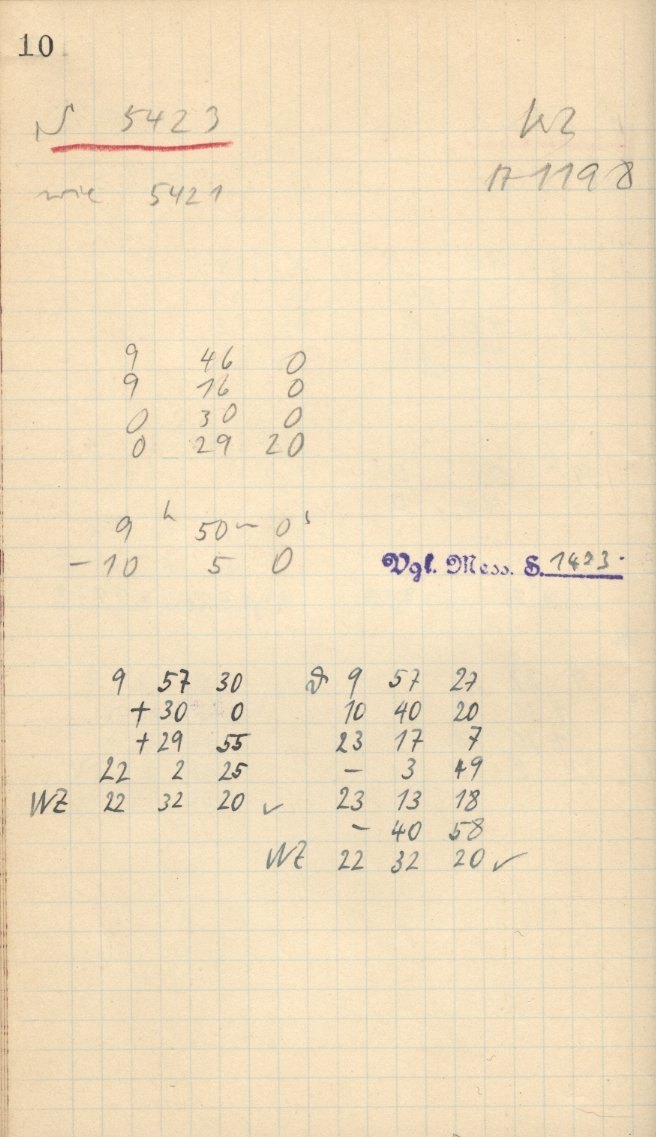 10
N 5423
wie 5421
17-1198
9 46 0
9 16 0
0 30 0
0 29 20
9 h 50 m 0 s
- 10 5 0
Vgl. Mess. S. 1423.
9 57 30
+ 30 0
+ 29 55
22 2 25
WZ 22 32 20 ✓
9 57 27
10 40 20
23 17 7
- 3 49
23 13 18
- 40 58
WZ 22 32 20 ✓